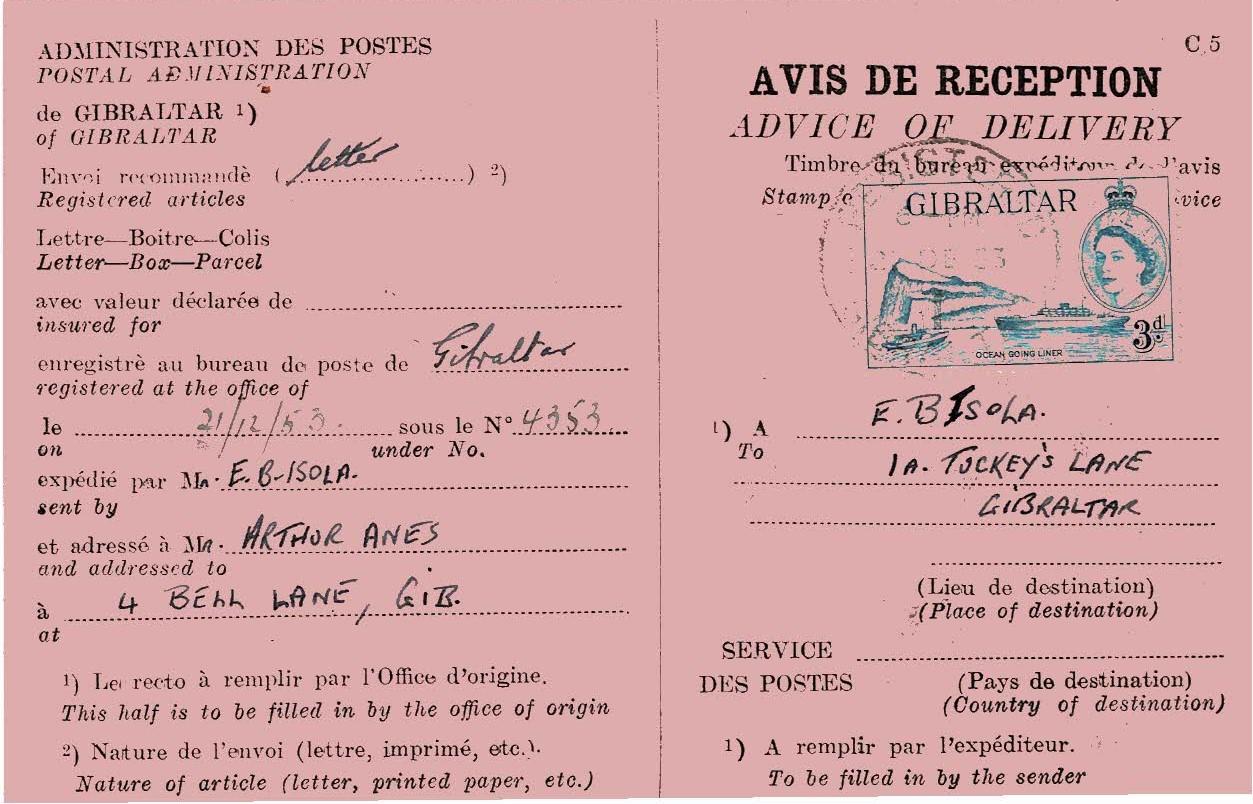 ADMINISTRATION DES POSTES
POSTAL ADMINISTRATION
de GIBRALTAR 1)
of GIBRALTAR
Envoi recommandè (letter) 2)
Registered articles
Lettre—Boitre—Colis
Letter—Box—Parcel
avec valeur déclarée de
insured for
enregistrè au bureau de poste de Gibraltar
registered at the office of
le 21/12/53. sous le No 4353
on under No.
expédié par Mr. E.B-ISOLA.
sent by
et adressé à Mr. ARTHUR ANES
and addressed to
à 4 BELL LANE, GIB.
at
1) Le recto à remplir par l'Office d'origine.
This half is to be filled in by the office of origin
2) Nature de l'envoi (lettre, imprimé, etc.).
Nature of article (letter, printed paper, etc.)
C 5
AVIS DE RECEPTION
ADVICE OF DELIVERY
Timbre du bureau expéditeur de l'avis
Stamp
GIBRALTAR
3d
OCEAN GOING LINER
1) A E. B ISOLA.
To 1A. TUCKEY'S LANE
GIBRALTAR
(Lieu de destination)
(Place of destination)
SERVICE
DES POSTES (Pays de destination)
(Country of destination)
1) A remplir par l'expéditeur.
To be filled in by the sender